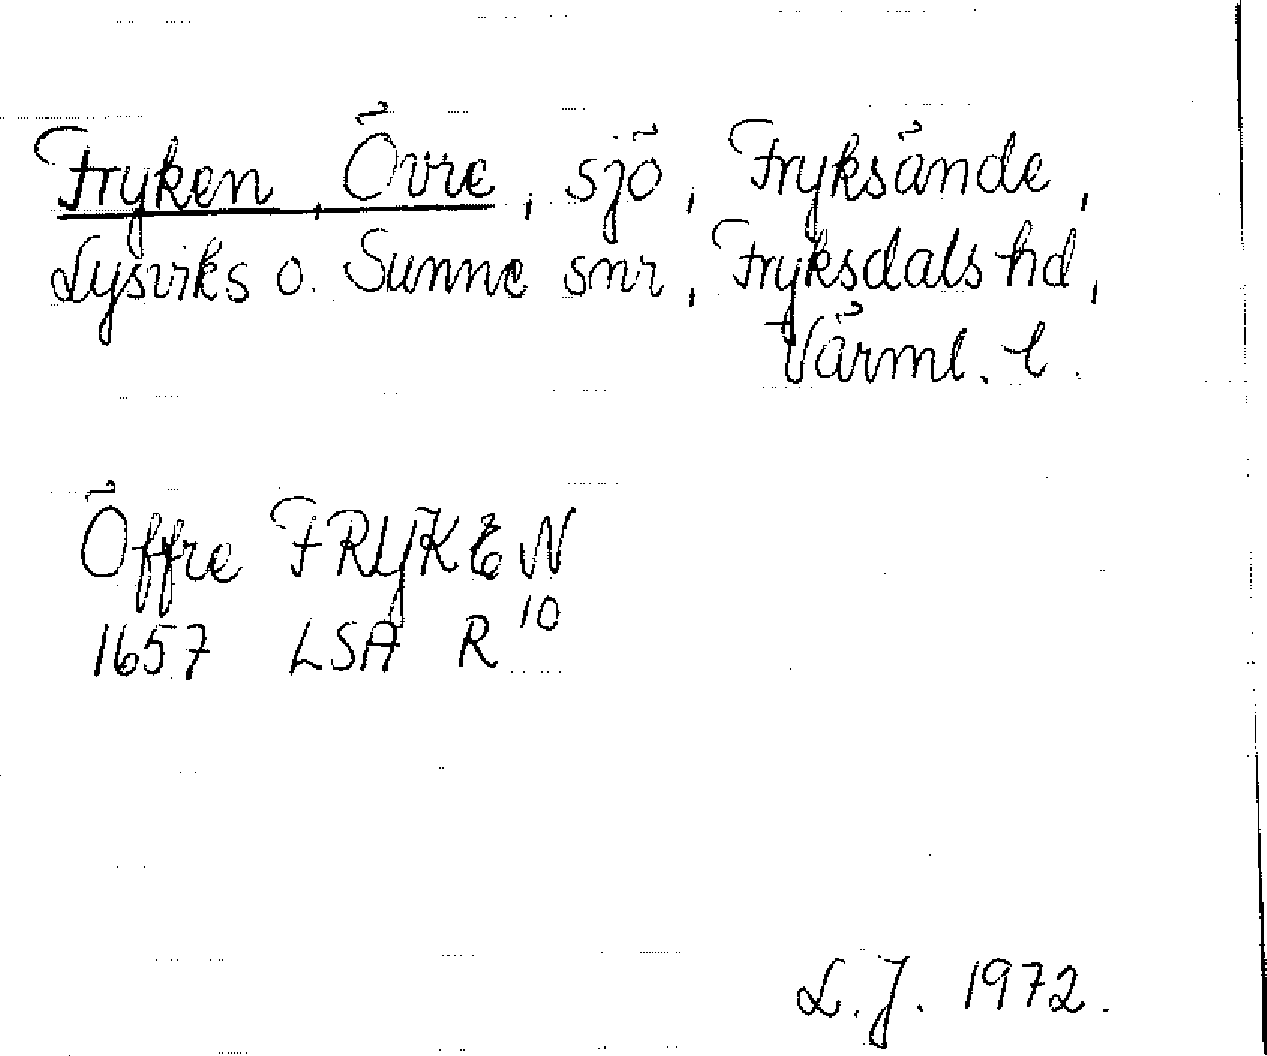 Fryken, Övre, sjö, Fryksände,
Lysviks o. Sunne snr, Fryksdals hd,
Värml. l.
Öffre FRYKEN
1657 LSA R 10
L.J. 1972.